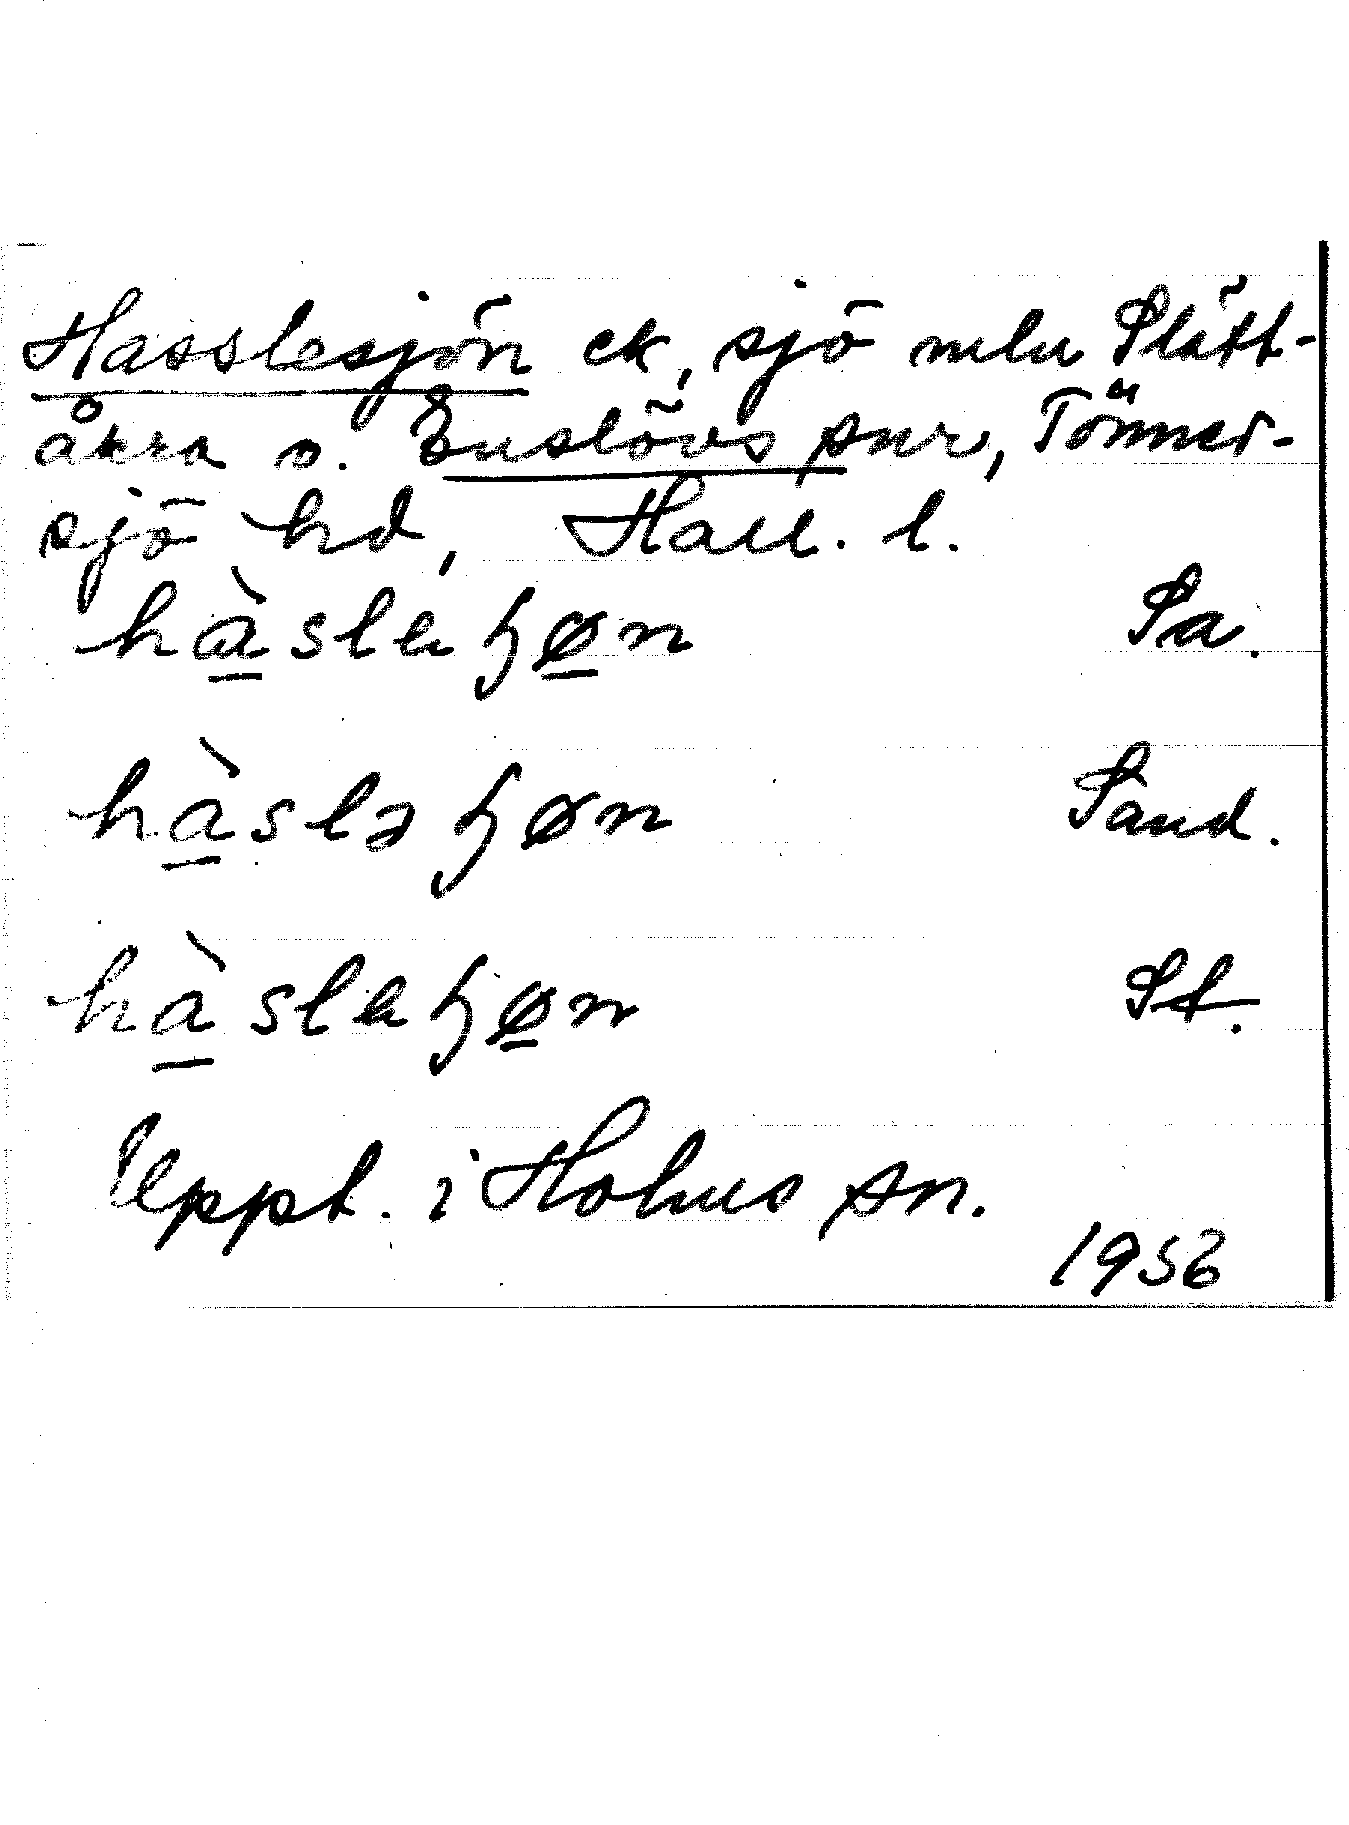 Hasslesjön ek, sjö mln Slätt-
åkra o. Enslövs snr, Tönner-
sjö hd, Hall. l.
hàsleɧøn Sa.
hàsləɧøn Sand.
hàsleɧøn St.
Uppt. i Holms sn.
1956